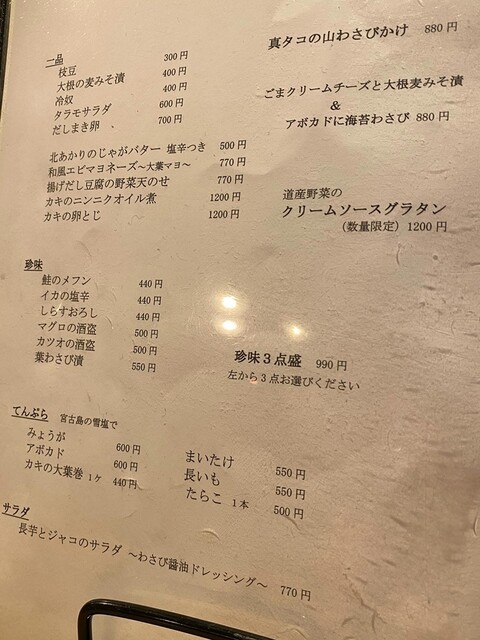 一品
枝豆 300円
大根の麦みそ漬 400円
冷奴 400円
タラモサラダ 600円
だしまき卵 700円
北あかりのじゃがバター 塩辛つき 500円
和風エビマヨネーズ～大葉マヨ～ 770円
揚げだし豆腐の野菜天のせ 770円
カキのニンニクオイル煮 1200円
カキの卵とじ 1200円
真タコの山わさびかけ 880円
ごまクリームチーズと大根麦みそ漬
&
アボカドに海苔わさび 880円
道産野菜の
クリームソースグラタン
（数量限定）1200円
珍味
鮭のメフン 440円
イカの塩辛 440円
しらすおろし 440円
マグロの酒盗 500円
カツオの酒盗 500円
葉わさび漬 550円
珍味３点盛 990円
左から３点お選びください
てんぷら 宮古島の雪塩で
みょうが 600円
アボカド 600円
カキの大葉巻 1ケ 440円
まいたけ 550円
長いも 550円
たらこ 1本 500円
サラダ
長芋とジャコのサラダ ～わさび醤油ドレッシング～ 770円